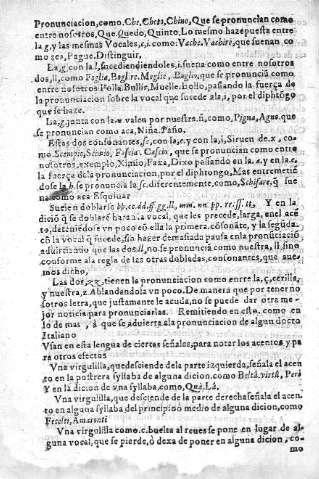 Pronunciacion, como. Che, Checo, Chino, Que se pronuncian como
entre nosotros, Que, Quedo, Quinto. Lo mesmo haze puesta entre
la g, y las mesmas Vocales, e, i. como: Vache. Vachire, que suenan co
mo aca, Pague. Distinguir.
La, g, con la l. sucediendoles, i. suena como entre nosotros
dos, ll, como Foglia, Boglire. Moglie, Buglio, que se pronunciā como
entre nosotros Folla. Bullir. Muelle. bollo, passando la fuerça de
la pronunciacion sobre la vocal que sucede ala, i, por el diphtōgo
que se haze.
La, g, junta con la. n valen por nuestra. ñ, como, Pigna, Agna. que
se pronuncian como aca, Niña. Paño.
Estas dos consonantes, sc, con la, e, y con la, i, Siruen de. x, co-
mo Scempio, Scinio, Fascia. Lascio, que se pronuncian como entre
nosotros, exemplo, Xinio, Faxa, Dixo passando en la. e. y en la. e,
la fuerça de la pronunciacion, por el diphtongo, Mas entremetiē
dose la, h. se pronuncia la, sc. diferentemente, como, Schifare, q̄ sue
na como aca Esquiuar
Suelen doblarse bb. cc. dd. ff. gg. ll, mm. nn. pp. rr. ss. tt, Y en la
diciō q̄ se doblarē harā la vocal, que les precede, larga, en el acē
to, deteniēdose vn poco en ella la primera cōsonāte, y la seguda
cō la vocal q̄ sucede, sin hazer demasiada pausa en la pronūciaciō
aduirtiendo que las dos ll, no se pronunciarā como nuestra, ll sino
conforme ala regla de las otras dobladas, consonantes, que aue
mos dicho,
Las dos, zz, tienen la pronunciacion como entre la, ç, cerilla,
y nuestra, z. Ablandandola vn poco. De manera que por tener no
sotros letra, que justamente le acuda, no se puede dar otra me-
jor noticia para pronunciarlas. Remitiendo en esto. como en
lo de mas, à que se aduierta ala pronunciacion de algun docto
Italiano
Vsan en esta lengua de ciertas señales, para notar los acentos, y pa
ra otros efectos
Vna virgulilla, que desciende dela parte izquierda, señala el acen
to en la postrera syllaba de alguna dicion. como Beltà. virtù, Però
Y en la dicion de vna syllaba, como, Què, Là.
Vna virgulilla, que desciende de la parte derecha señala el acen
to en alguna syllaba del principio ò medio de alguna dicion, como
Vna virgulilla como. c. buelta al reues se pone en lugar de al
guna vocal, que se pierde, ò dexa de poner en alguna dicion, co-
mo